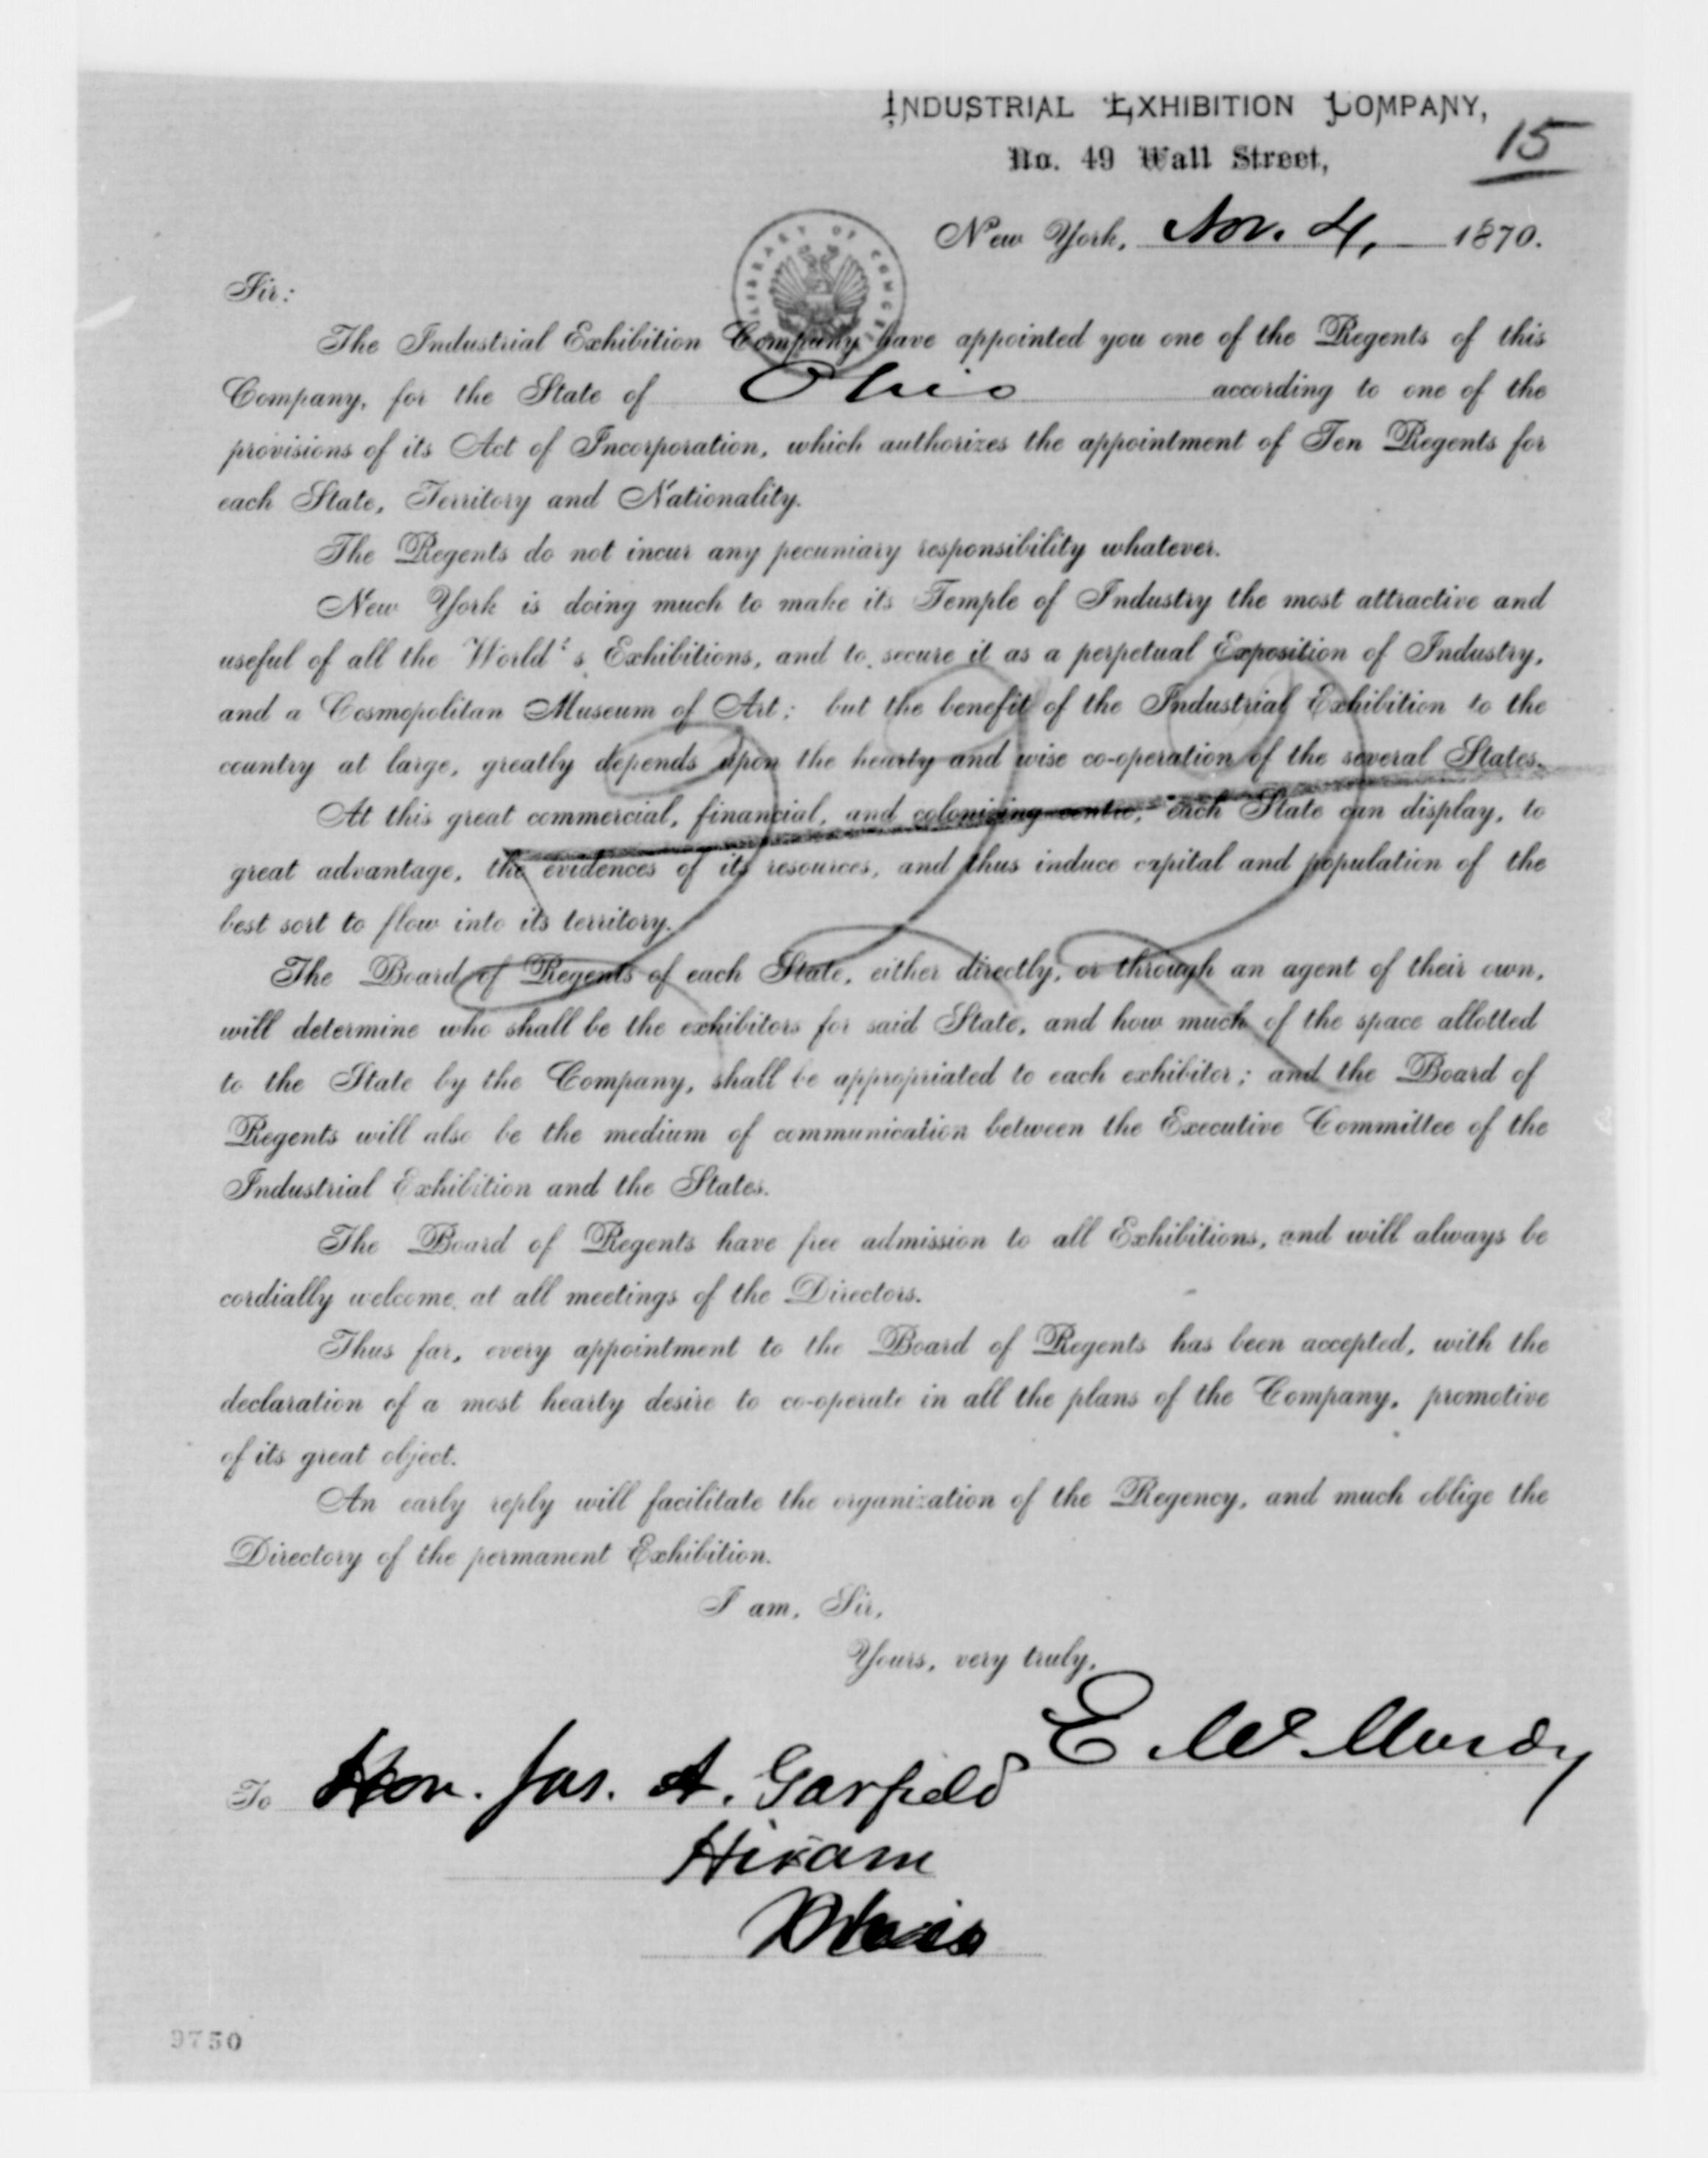 INDUSTRIAL EXHIBITION COMPANY,
15
No. 49 Wall Street,
New York, Nov. 4, 1870.
LIBRARY OF CONGRESS
Sir:
The Industrial Exhibition Company have appointed you one of the Regents of this
Company, for the State of Ohio according to one of the
provisions of its Act of Incorporation, which authorizes the appointment of Ten Regents for
each State, Territory and Nationality.
The Regents do not incur any pecuniary responsibility whatever.
New York is doing much to make its Temple of Industry the most attractive and
useful of all the World's Exhibitions, and to secure it as a perpetual Exposition of Industry,
and a Cosmopolitan Museum of Art; but the benefit of the Industrial Exhibition to the
country at large, greatly depends upon the hearty and wise co-operation of the several States.
At this great commercial, financial, and colonizing centre, each State can display, to
great advantage, the evidences of its resources, and thus induce capital and population of the
best sort to flow into its territory.
The Board of Regents of each State, either directly, or through an agent of their own,
will determine who shall be the exhibitors for said State, and how much of the space allotted
to the State by the Company, shall be appropriated to each exhibitor; and the Board of
Regents will also be the medium of communication between the Executive Committee of the
Industrial Exhibition and the States.
The Board of Regents have free admission to all Exhibitions, and will always be
cordially welcome at all meetings of the Directors.
Thus far, every appointment to the Board of Regents has been accepted, with the
declaration of a most hearty desire to co-operate in all the plans of the Company, promotive
of its great object.
An early reply will facilitate the organization of the Regency, and much oblige the
Directory of the permanent Exhibition.
I am, Sir,
Yours, very truly,
E McMurdy
To Hon. Jas. A. Garfield
Hiram
Ohio
9750